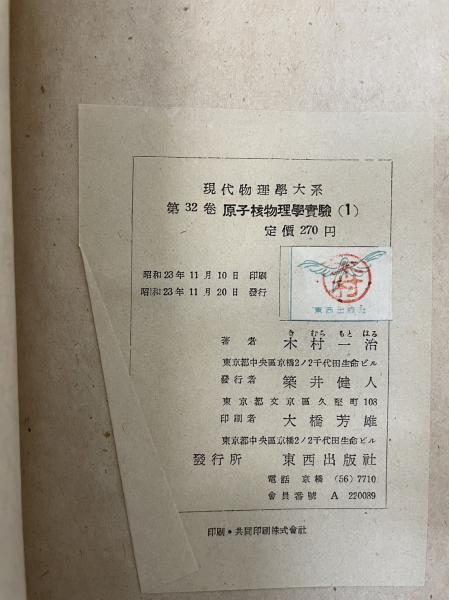 現代物理學大系
第32卷 原子核物理學實驗(1)
定價 270 円
昭和23年11月10日 印刷
昭和23年11月20日 發行
木村
東西出版社
き むら もと はる
著者 木村一治
東京都中央區京橋2ノ2千代田生命ビル
發行者 築井健人
東京都文京區久堅町108
印刷者 大橋芳雄
東京都中央區京橋2ノ2千代田生命ビル
發行所 東西出版社
電話 京橋 (56) 7710
會員番號 A 220089
印刷・共同印刷株式會社